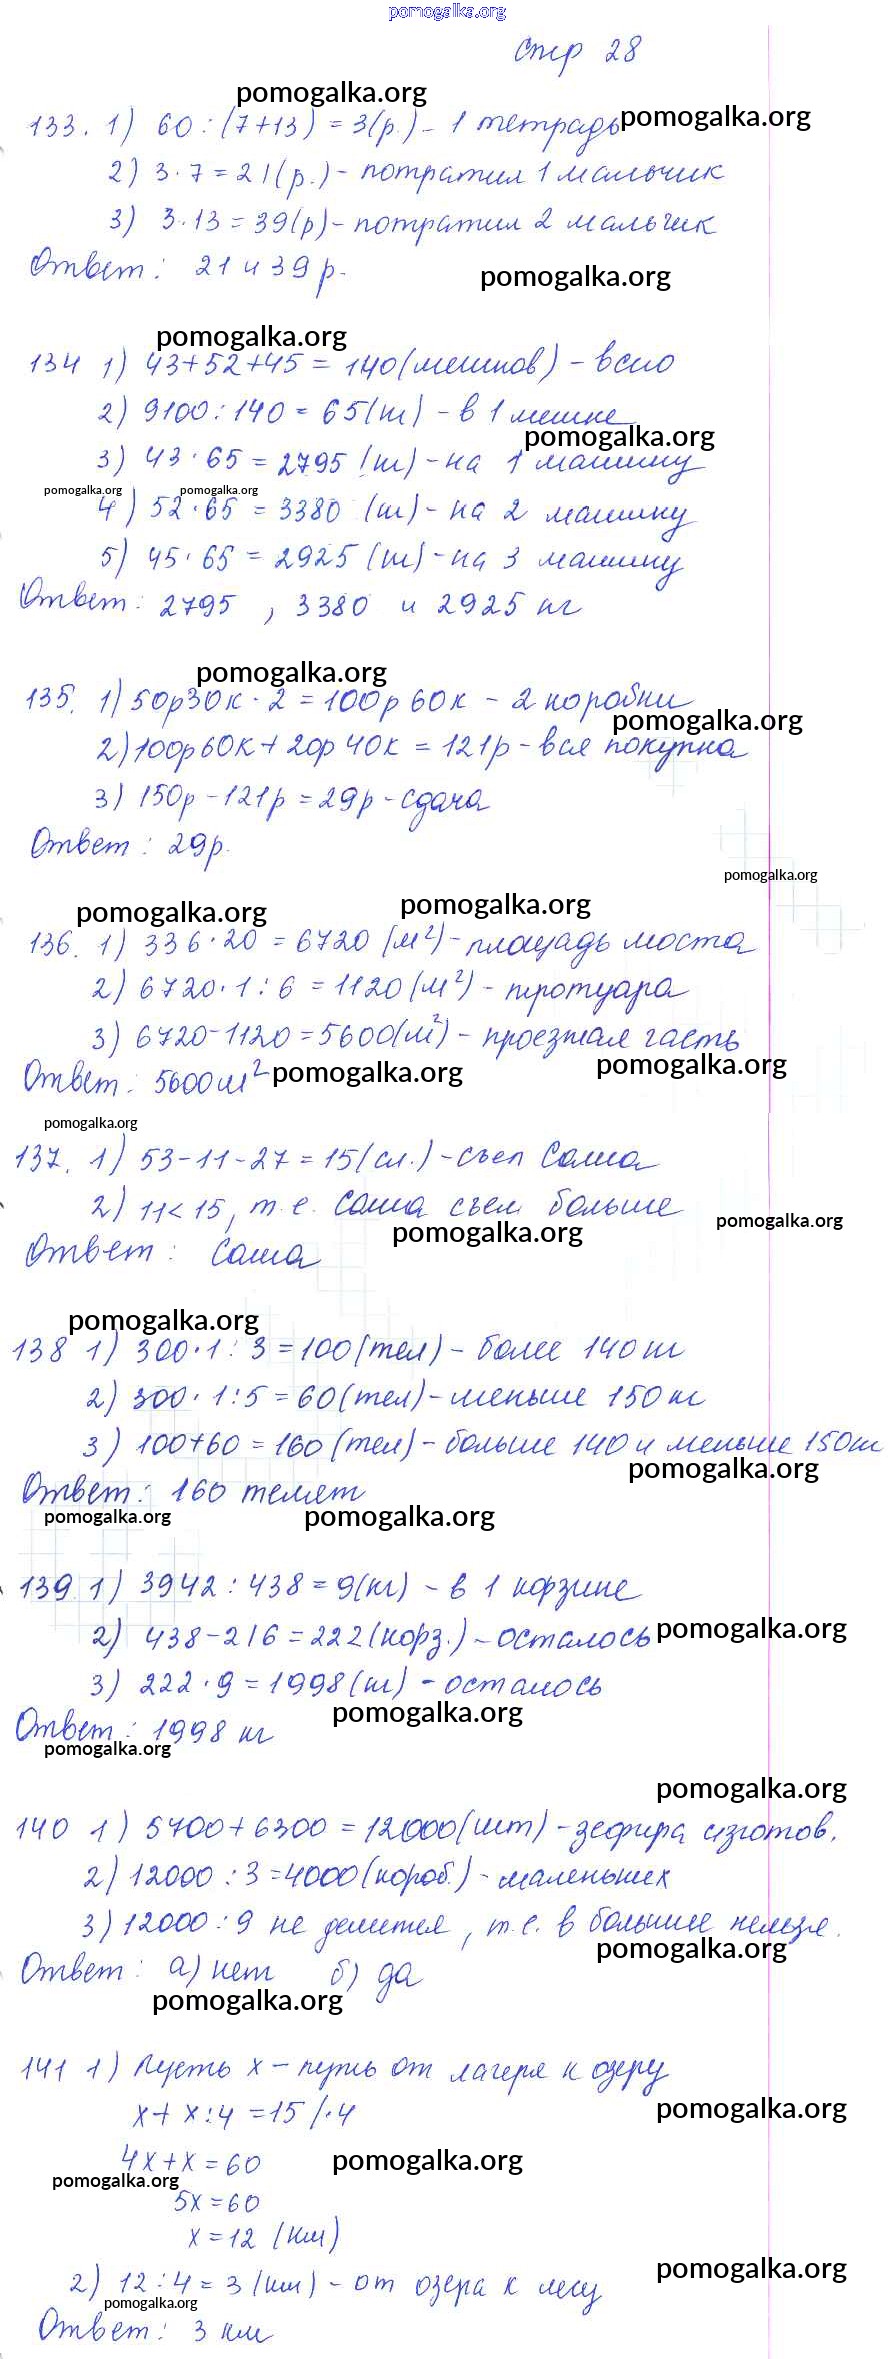 pomogalka.org
стр 28
pomogalka.org
133. 1) 60 : (7+13) = 3(р.) - 1 тетрадь pomogalka.org
2) 3·7 = 21(р.) - потратил 1 мальчик
3) 3·13 = 39(р) - потратил 2 мальчик
Ответ: 21 и 39 р. pomogalka.org
pomogalka.org
134 1) 43+52+45 = 140(мешков) - всего
2) 9100 : 140 = 65(кг) - в 1 мешке
pomogalka.org
3) 43·65 = 2795 (кг) - на 1 машину
pomogalka.org pomogalka.org
4) 52·65 = 3380 (кг) - на 2 машину
5) 45·65 = 2925 (кг) - на 3 машину
Ответ: 2795, 3380 и 2925 кг
pomogalka.org
135. 1) 50р30к·2 = 100р 60к - 2 коробки
pomogalka.org
2) 100р60к + 20р 40к = 121р - вся покупка
3) 150р - 121р = 29р - сдача
Ответ: 29р.
pomogalka.org
pomogalka.org pomogalka.org
136. 1) 336·20 = 6720 (м²) - площадь моста
2) 6720·1 : 6 = 1120 (м²) - тротуара
3) 6720-1120 = 5600(м²) - проезжая часть
Ответ: 5600м² pomogalka.org pomogalka.org
pomogalka.org
137. 1) 53-11-27 = 15(сл.) - съел Саша
2) 11 < 15, т.е. Саша съел больше
pomogalka.org pomogalka.org
Ответ: Саша
pomogalka.org
138 1) 300·1 : 3 = 100(тел) - более 140 кг
2) 300·1:5 = 60(тел) - меньше 150 кг
3) 100+60 = 160 (тел) - больше 140 и меньше 150кг
pomogalka.org
Ответ: 160 телят
pomogalka.org pomogalka.org
139 1) 3942 : 438 = 9(кг) - в 1 корзине
2) 438-216 = 222(корз.) - осталось pomogalka.org
3) 222·9 = 1998(кг) - осталось
pomogalka.org
Ответ: 1998 кг
pomogalka.org
pomogalka.org
140 1) 5700+6300 = 12000(шт) - зефира изготов.
2) 12000 : 3 = 4000(короб.) - маленьких
3) 12000 : 9 не делится, т.е. в большие нельзя.
pomogalka.org
Ответ: а) нет б) да
pomogalka.org
141 1) Пусть х - путь от лагеря к озеру
х + х:4 = 15 /·4 pomogalka.org
4х+х = 60 pomogalka.org
pomogalka.org
5х = 60
х = 12 (км)
pomogalka.org
2) 12 : 4 = 3 (км) - от озера к лесу
pomogalka.org
Ответ: 3 км